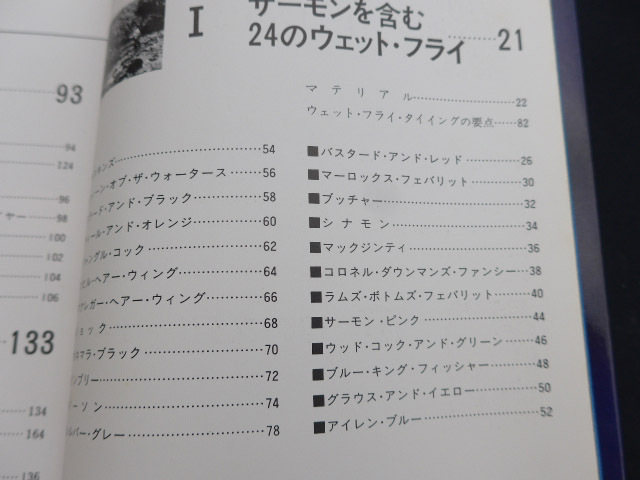 I
サーモンを含む
24のウェット・フライ………21
マテリアル………22
ウェット・フライ・タイイングの要点……82
■バスタード・アンド・レッド………26
■マーロックス・フェバリット………30
■ブッチャー………32
■シナモン………34
■マックジンティ………36
■コロネル・ダウンマンズ・ファンシー…38
■ラムズ・ボトムズ・フェバリット………40
■サーモン・ピンク………44
■ウッド・コック・アンド・グリーン………46
■ブルー・キング・フィッシャー………48
■グラウス・アンド・イエロー………50
■アイレン・ブルー………52
………54
ーン・オブ・ザ・ウォータース………56
ード・アンド・ブラック………58
ール・アンド・オレンジ………60
ングル・コック………62
ヘアー・ウィング………64
ンガー・ヘアー・ウィング………66
ック………68
マラ・ブラック………70
ンブリー………72
ーソン………74
ルバー・グレー………78
93
94
124
96
ャー………98
100
102
104
106
133
134
164
136